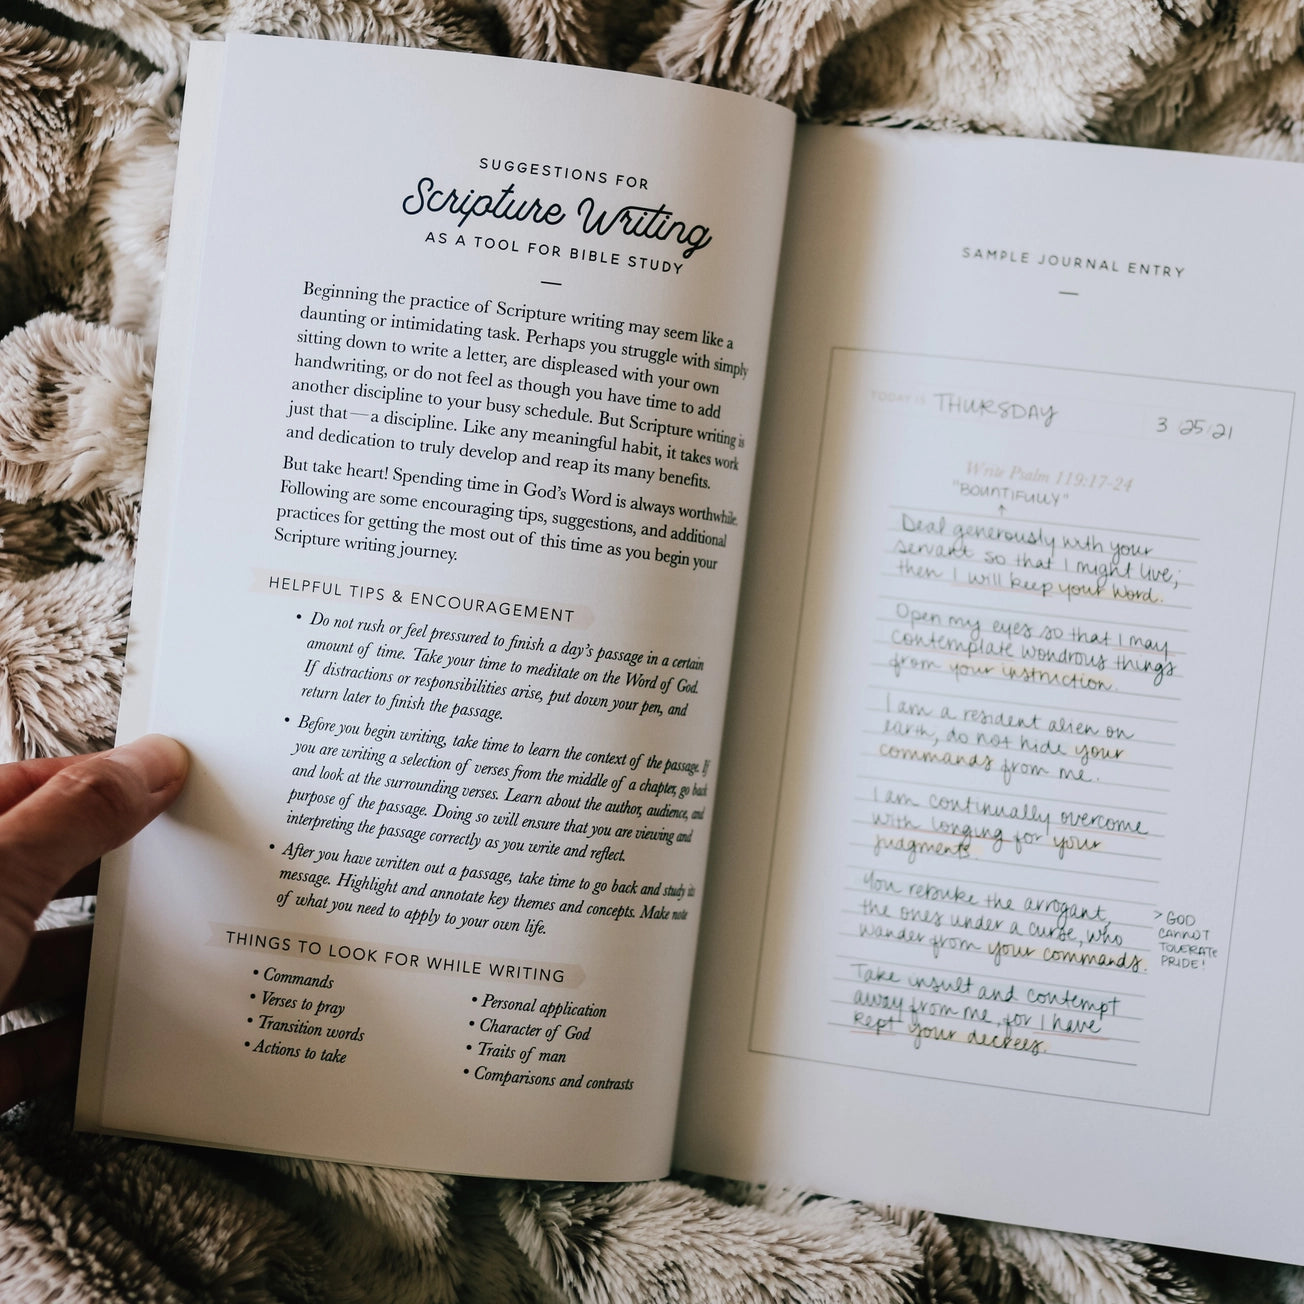 SUGGESTIONS FOR
Scripture Writing
AS A TOOL FOR BIBLE STUDY
Beginning the practice of Scripture writing may seem like a
daunting or intimidating task. Perhaps you struggle with simply
sitting down to write a letter, are displeased with your own
handwriting, or do not feel as though you have time to add
another discipline to your busy schedule. But Scripture writing is
just that—a discipline. Like any meaningful habit, it takes work
and dedication to truly develop and reap its many benefits.
But take heart! Spending time in God's Word is always worthwhile.
Following are some encouraging tips, suggestions, and additional
practices for getting the most out of this time as you begin your
Scripture writing journey.
HELPFUL TIPS & ENCOURAGEMENT
• Do not rush or feel pressured to finish a day's passage in a certain
amount of time. Take your time to meditate on the Word of God.
If distractions or responsibilities arise, put down your pen, and
return later to finish the passage.
• Before you begin writing, take time to learn the context of the passage. If
you are writing a selection of verses from the middle of a chapter, go back
and look at the surrounding verses. Learn about the author, audience, and
purpose of the passage. Doing so will ensure that you are viewing and
interpreting the passage correctly as you write and reflect.
• After you have written out a passage, take time to go back and study its
message. Highlight and annotate key themes and concepts. Make note
of what you need to apply to your own life.
THINGS TO LOOK FOR WHILE WRITING
• Commands
• Verses to pray
• Transition words
• Actions to take
• Personal application
• Character of God
• Traits of man
• Comparisons and contrasts
SAMPLE JOURNAL ENTRY
TODAY IS THURSDAY 3/25/21
Write Psalm 119:17-24
"BOUNTIFULLY"
↑
Deal generously with your
servant so that I might live;
then I will keep your word.
Open my eyes so that I may
contemplate wondrous things
from your instruction.
I am a resident alien on
earth, do not hide your
commands from me.
I am continually overcome
with longing for your
judgments.
You rebuke the arrogant,
the ones under a curse, who
wander from your commands.
> GOD
CANNOT
TOLERATE
PRIDE!
Take insult and contempt
away from me, for I have
kept your decrees.